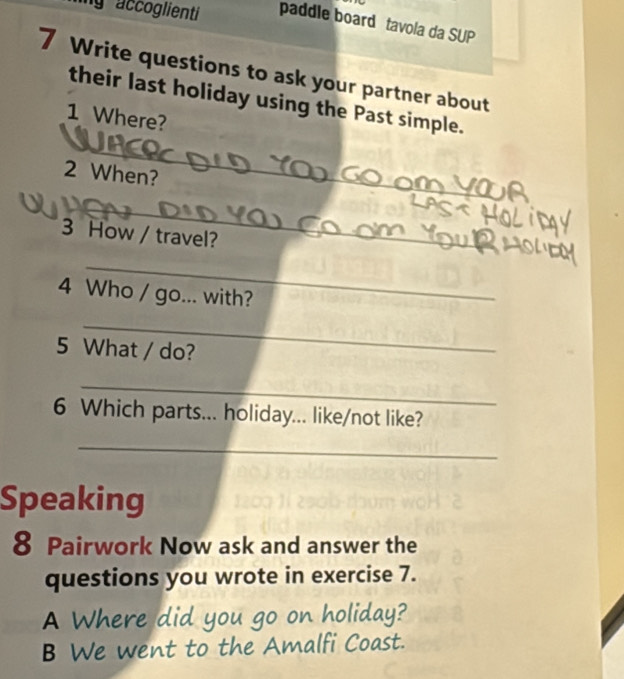 accoglienti
paddle board tavola da SUP
7 Write questions to ask your partner about
their last holiday using the Past simple.
1 Where?
WHERE DID YOU GO on YOUR
LAST HOLIDAY
2 When?
WHEN DID YOU GO on YOUR HOLIDAY
3 How / travel?
4 Who / go... with?
5 What / do?
6 Which parts... holiday... like/not like?
Speaking
8 Pairwork Now ask and answer the
questions you wrote in exercise 7.
A Where did you go on holiday?
B We went to the Amalfi Coast.